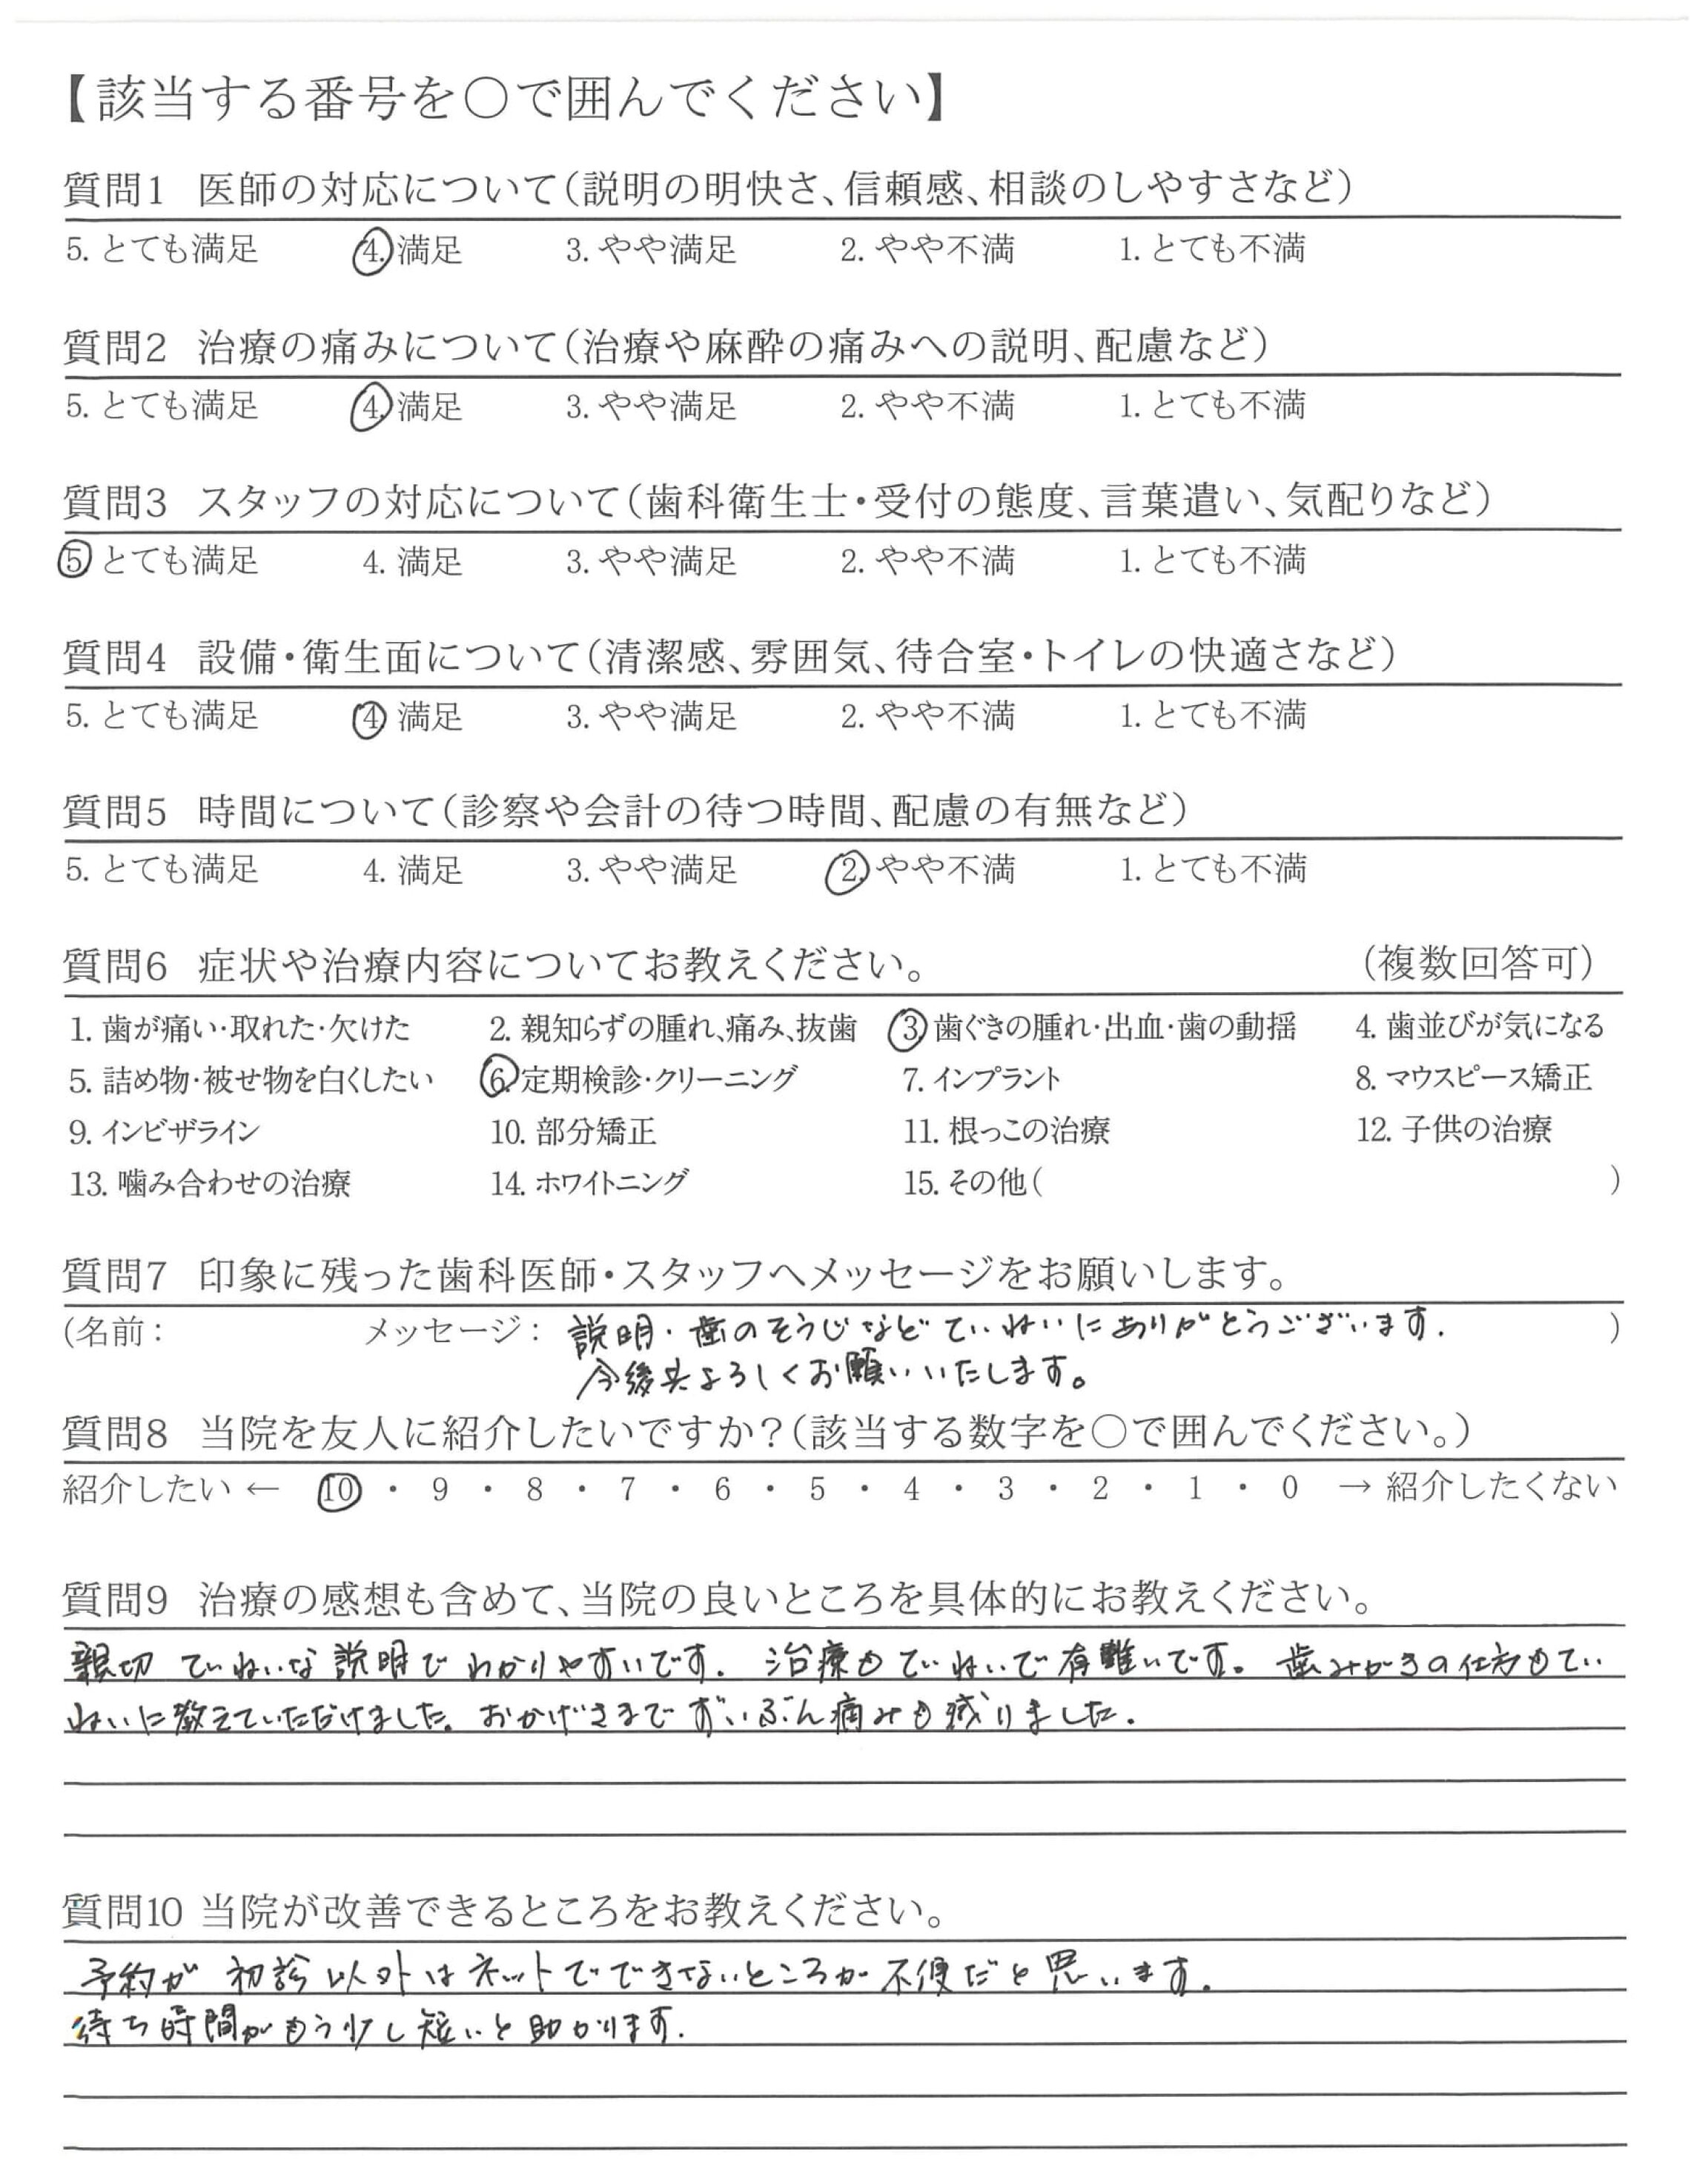 【該当する番号を○で囲んでください】
質問1 医師の対応について(説明の明快さ、信頼感、相談のしやすさなど)
5. とても満足 4. 満足 3. やや満足 2. やや不満 1. とても不満
質問2 治療の痛みについて(治療や麻酔の痛みへの説明、配慮など)
5. とても満足 4. 満足 3. やや満足 2. やや不満 1. とても不満
質問3 スタッフの対応について(歯科衛生士・受付の態度、言葉遣い、気配りなど)
5 とても満足 4. 満足 3. やや満足 2. やや不満 1. とても不満
質問4 設備・衛生面について(清潔感、雰囲気、待合室・トイレの快適さなど)
5. とても満足 4 満足 3. やや満足 2. やや不満 1. とても不満
質問5 時間について(診察や会計の待つ時間、配慮の有無など)
5. とても満足 4. 満足 3. やや満足 2. やや不満 1. とても不満
質問6 症状や治療内容についてお教えください。 (複数回答可)
1. 歯が痛い・取れた・欠けた 2. 親知らずの腫れ、痛み、抜歯 3 歯ぐきの腫れ・出血・歯の動揺 4. 歯並びが気になる
5. 詰め物・被せ物を白くしたい 6. 定期検診・クリーニング 7. インプラント 8. マウスピース矯正
9. インビザライン 10. 部分矯正 11. 根っこの治療 12. 子供の治療
13. 噛み合わせの治療 14. ホワイトニング 15. その他( )
質問7 印象に残った歯科医師・スタッフへメッセージをお願いします。
(名前: メッセージ: 説明・歯のそうじなどていねいにありがとうございます. )
今後共よろしくお願いいたします。
質問8 当院を友人に紹介したいですか?(該当する数字を○で囲んでください。)
紹介したい ← 10 ・ 9 ・ 8 ・ 7 ・ 6 ・ 5 ・ 4 ・ 3 ・ 2 ・ 1 ・ 0 → 紹介したくない
質問9 治療の感想も含めて、当院の良いところを具体的にお教えください。
親切 ていねいな説明でわかりやすいです. 治療もていねいで有難いです。歯みがきの仕方もてい
ねいに教えていただけました。おかげさまでずいぶん痛みも減りました.
質問10 当院が改善できるところをお教えください。
予約が初診以外はネットでできないところが不便だと思います.
待ち時間がもう少し短いと助かります.